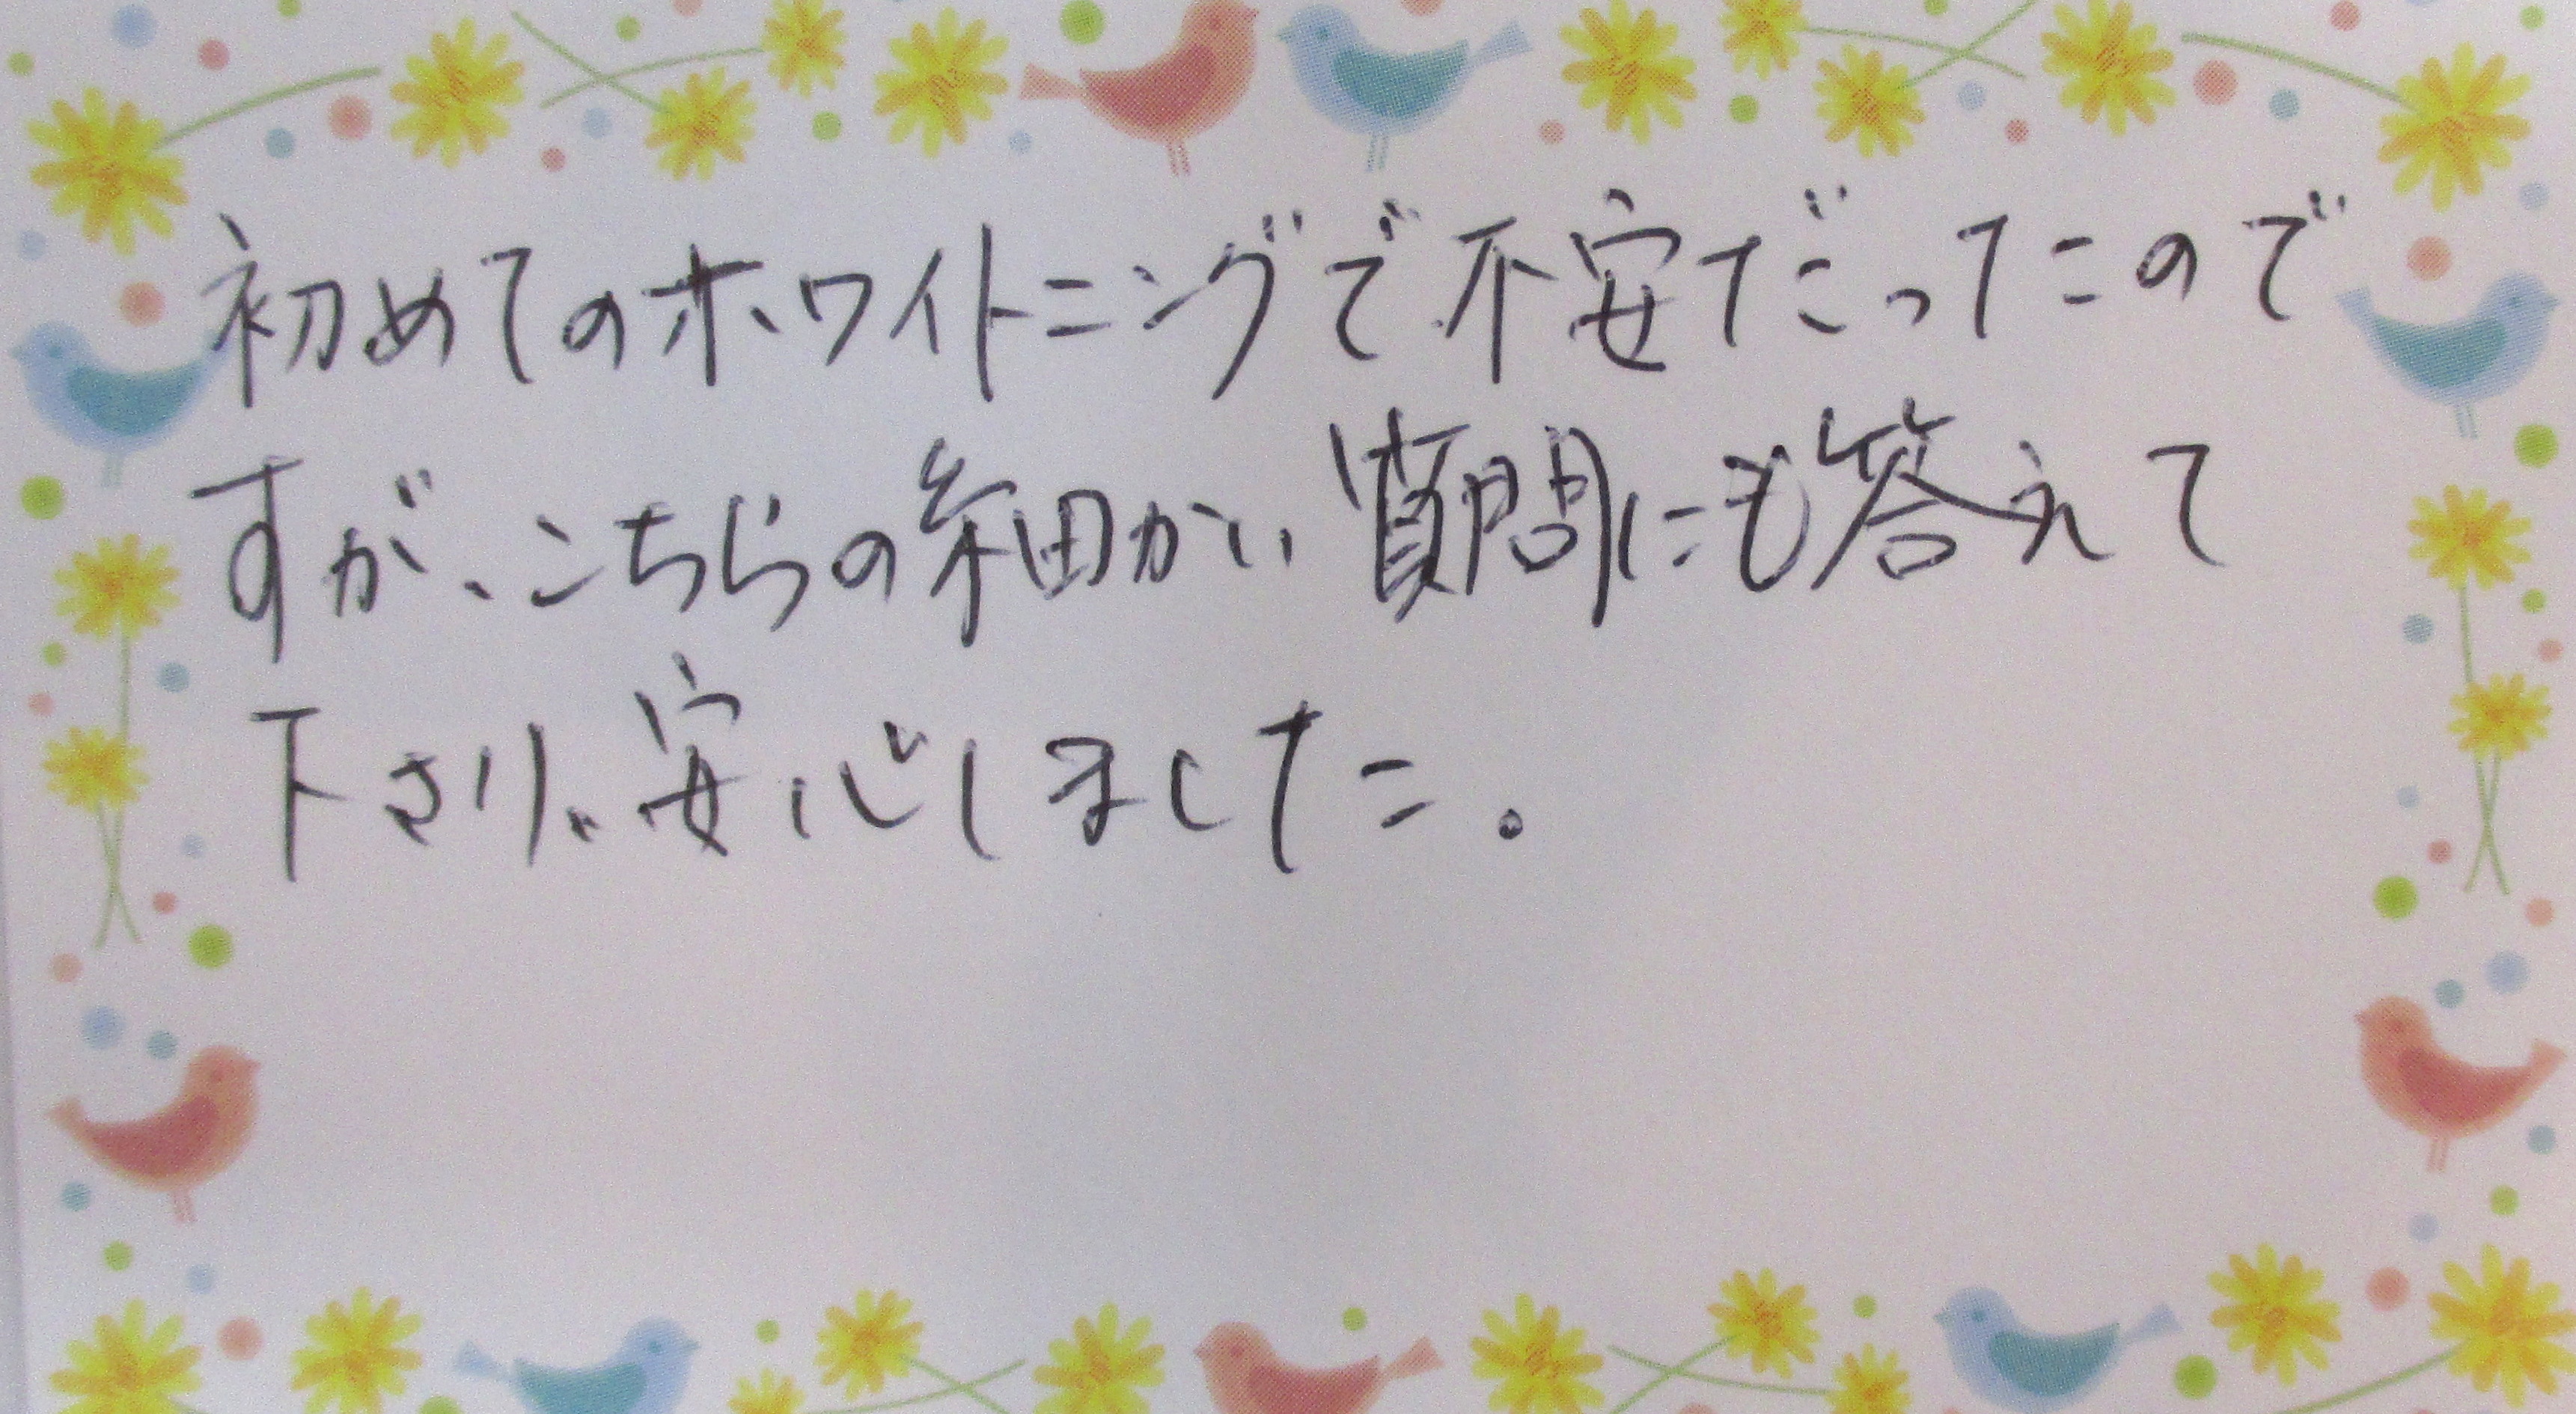 初めてのホワイトニングで不安だったので
すが、こちらの細かい質問にも答えて
下さり、安心しました。